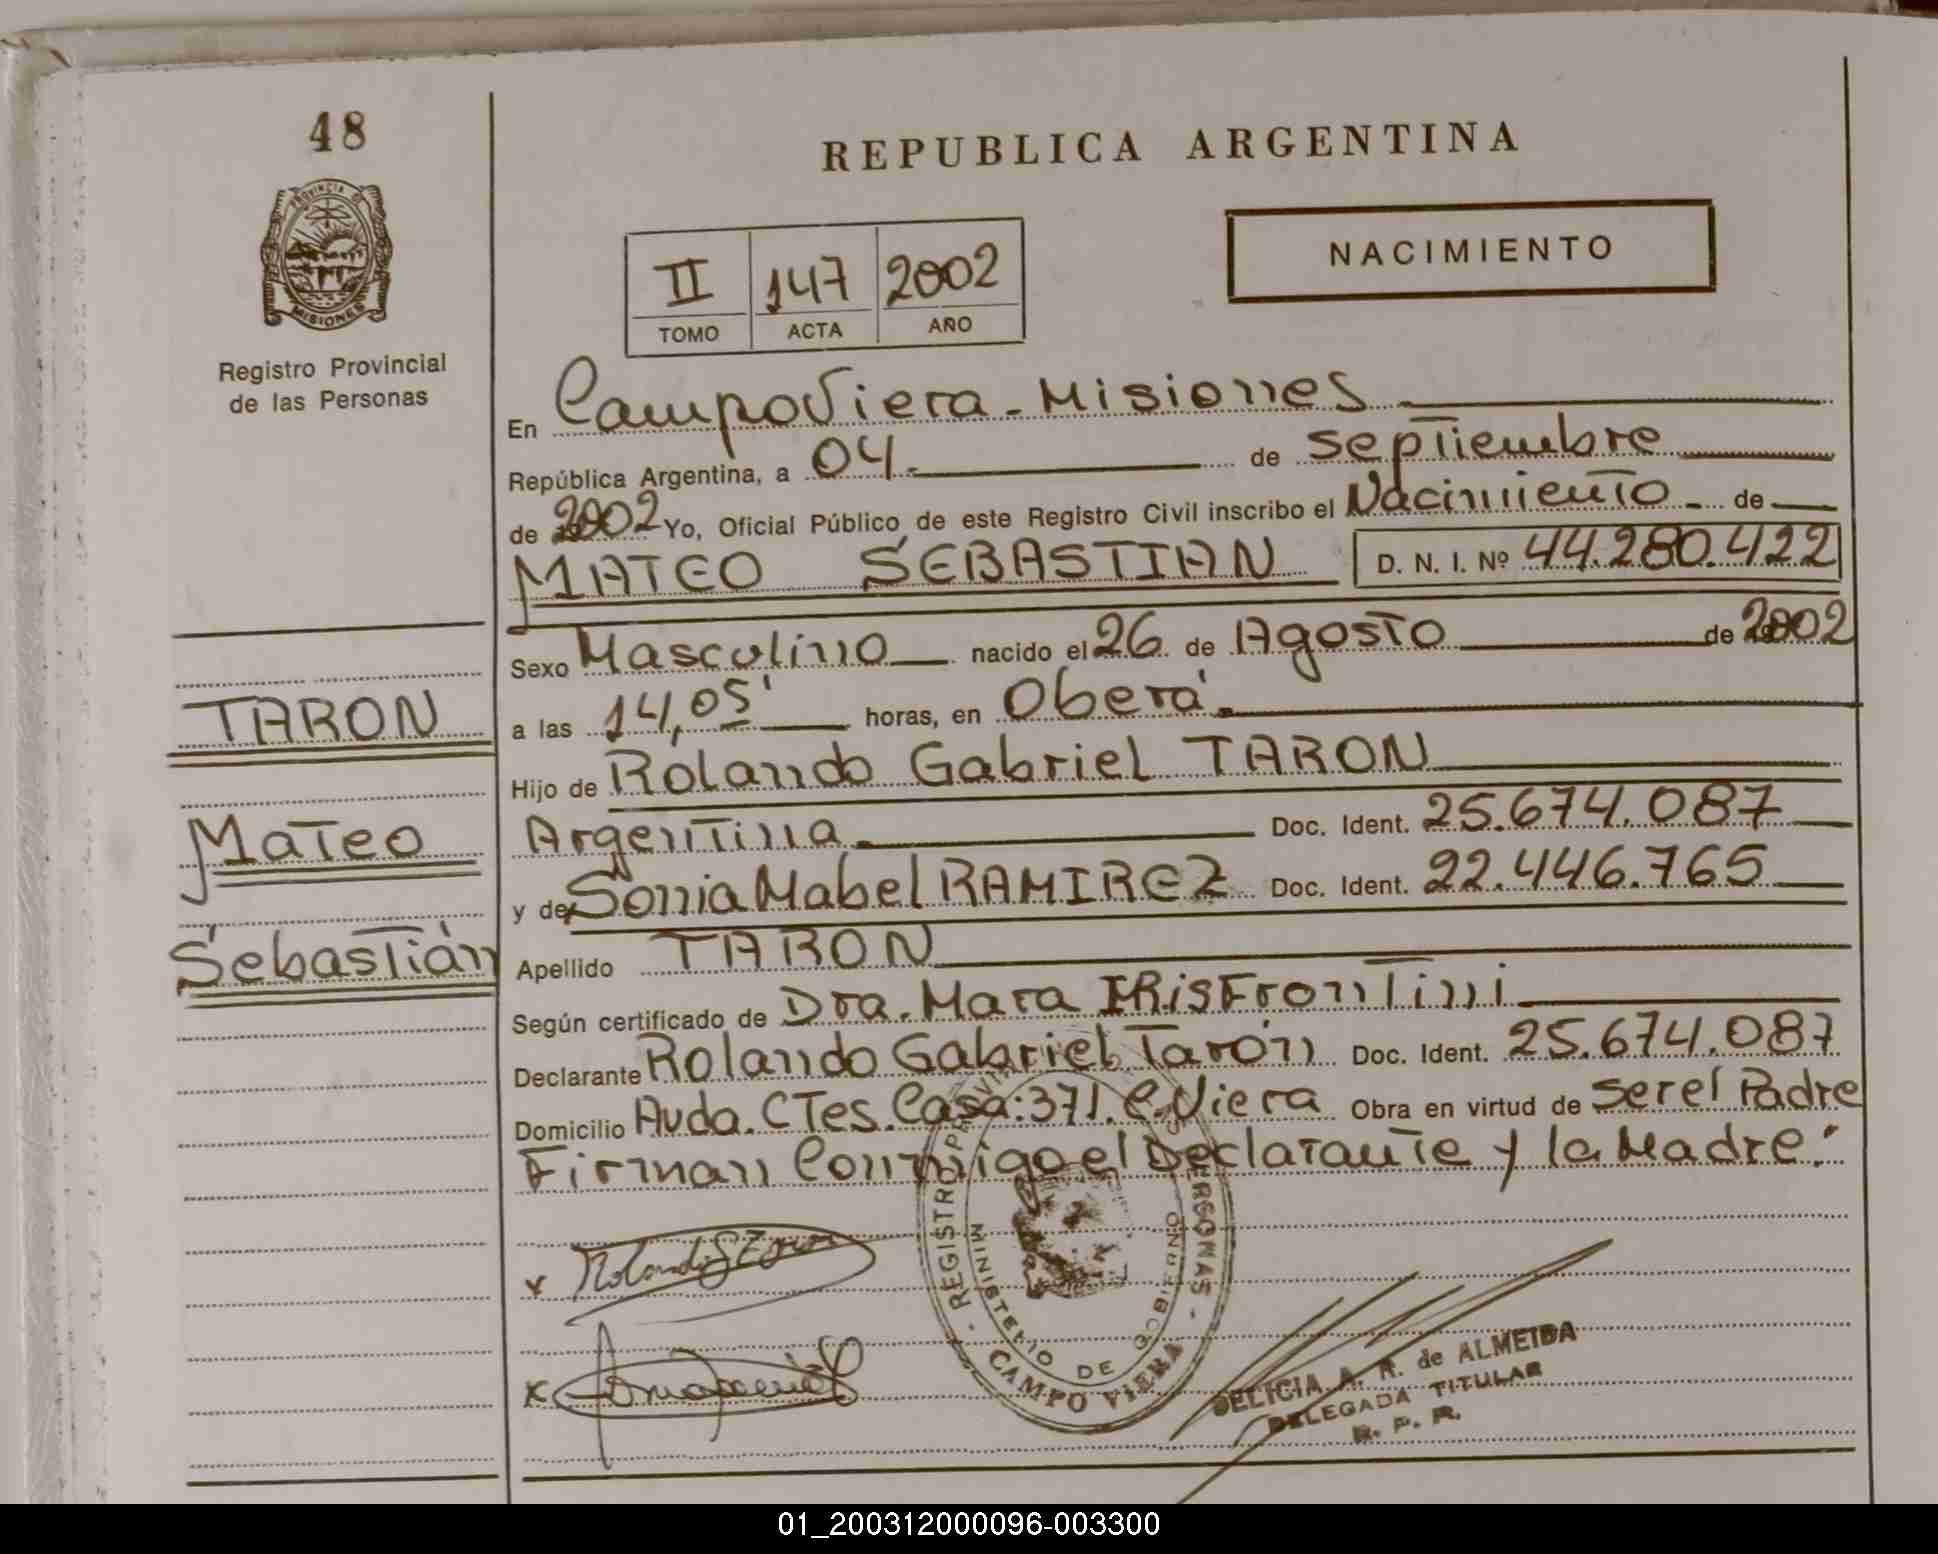 48
PROVINCIA DE
MISIONES
Registro Provincial
de las Personas
TARON
Mateo
Sebastián
REPUBLICA ARGENTINA
II 147 2002
TOMO ACTA AÑO
NACIMIENTO
En CampoViera - Misiones
República Argentina, a 04. de septiembre
de 2002 Yo, Oficial Público de este Registro Civil inscribo el Nacimiento de
MATEO SEBASTIAN D. N. I. Nº 44.280.422
Sexo Masculino nacido el 26 de Agosto de 2002
a las 14,05' horas, en Oberá.
Hijo de Rolando Gabriel TARON
Argentina Doc. Ident. 25.674.087
y de Sonia Mabel RAMIREZ Doc. Ident. 22.446.765
Apellido TARON
Según certificado de Dra. Mara IRis Frontini
Declarante Rolando Gabriel Tarón Doc. Ident. 25.674.087
Domicilio Avda. CTes. Casa: 371. C. Viera Obra en virtud de ser el Padre
Firman Conmigo el Declarante y la Madre.
x
x
REGISTRO PROVINCIAL PERSONAS - CAMPO VIERA
MINISTERIO DE GOBIERNO
DELICIA A. R. de ALMEIDA
DELEGADA TITULAR
R. P. P.
01_200312000096-003300